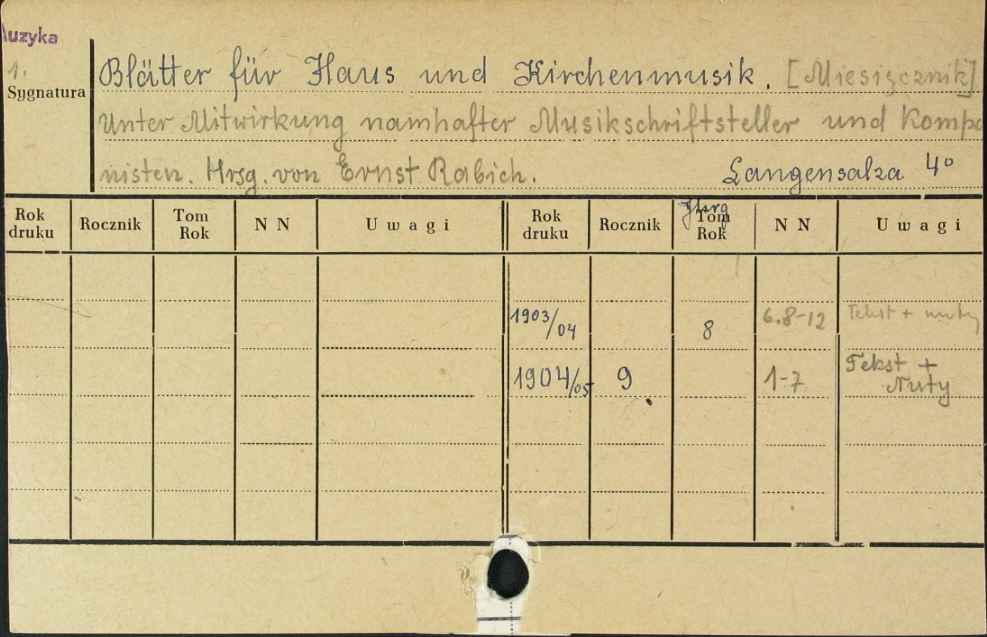 Muzyka
1.
Sygnatura
Blätter für Haus und Kirchenmusik. [Miesięcznik]
Unter Mitwirkung namhafter Musikschriftsteller und Kompo
nisten. Hrsg. von Ernst Rabich. Langensalza 4°
Rok druku Rocznik Tom Rok N N Uwagi Rok druku Rocznik Jhrg Tom Rok N N Uwagi
1903/04 8 6.8-12 Tekst + nuty
1904/05 9 1-7 Tekst + Nuty